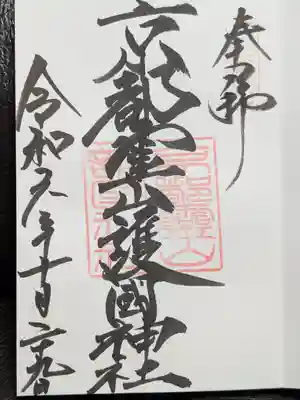 奉拝
京都霊山護國神社
令和六年十月二十九日